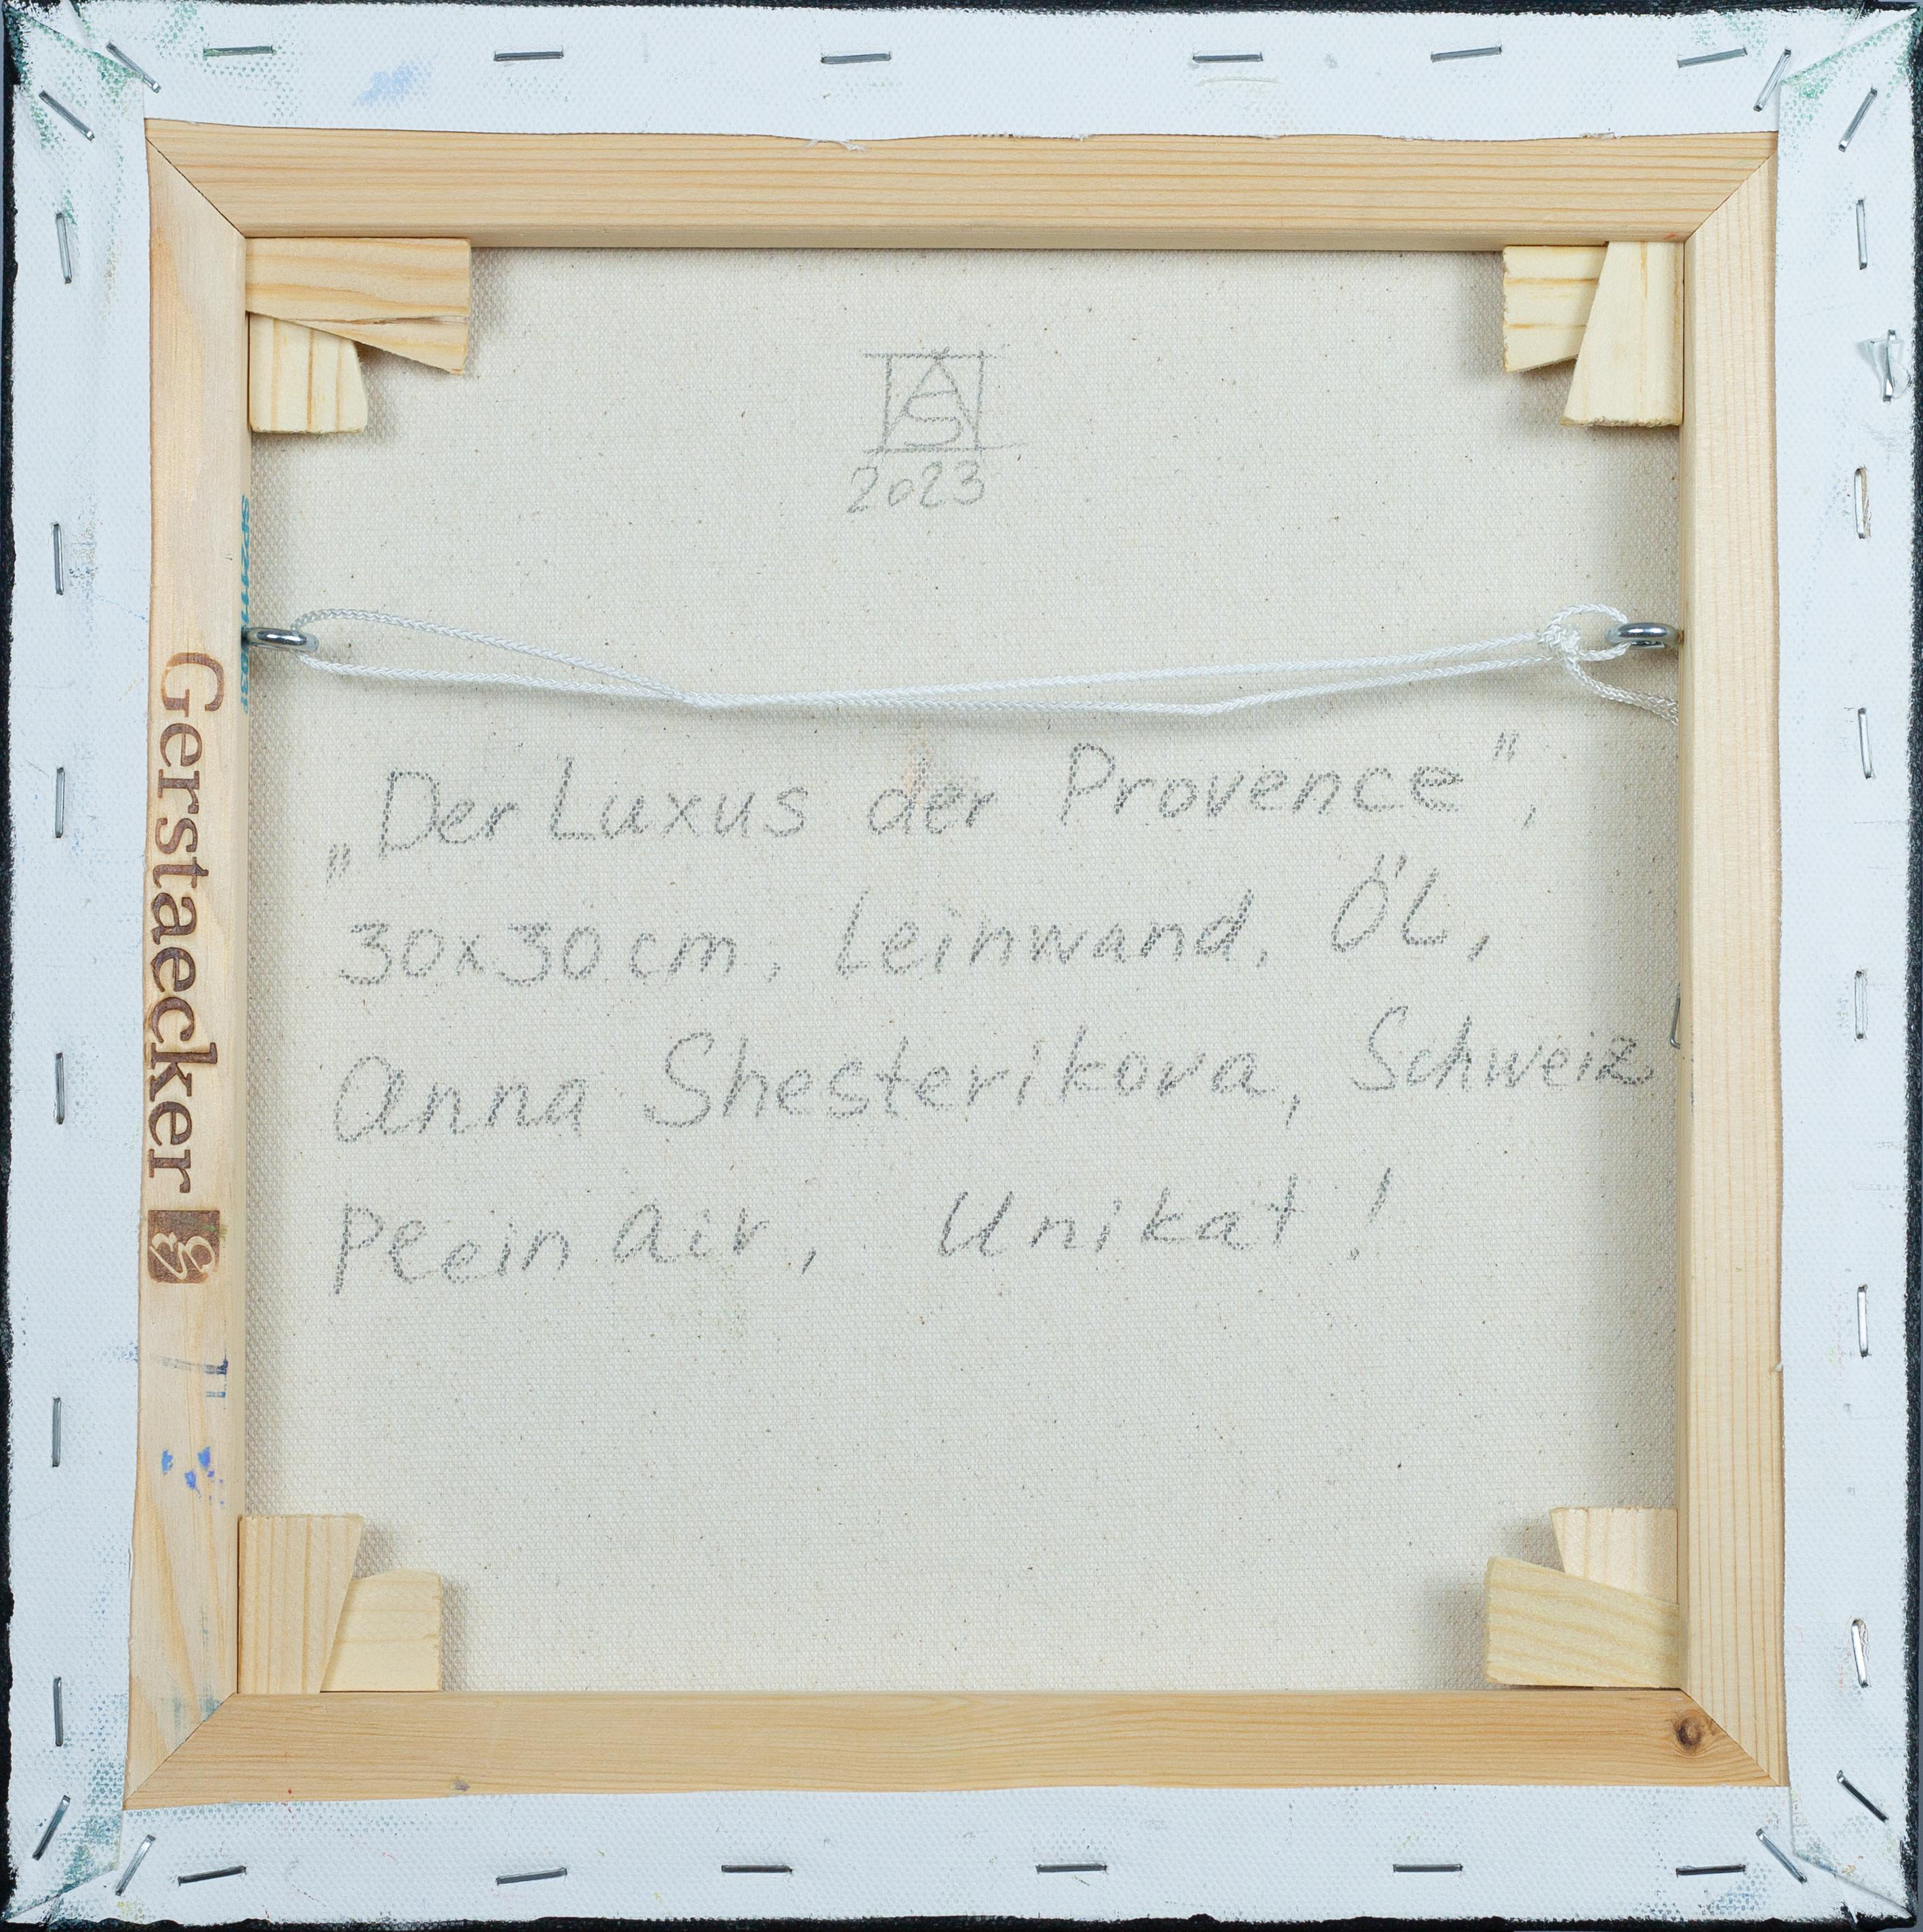 AS
2023
„Der Luxus der Provence",
30x30cm, Leinwand, ÖL,
Anna Shesterikova, Schweiz
Plein Air, Unikat!
Gerstaecker